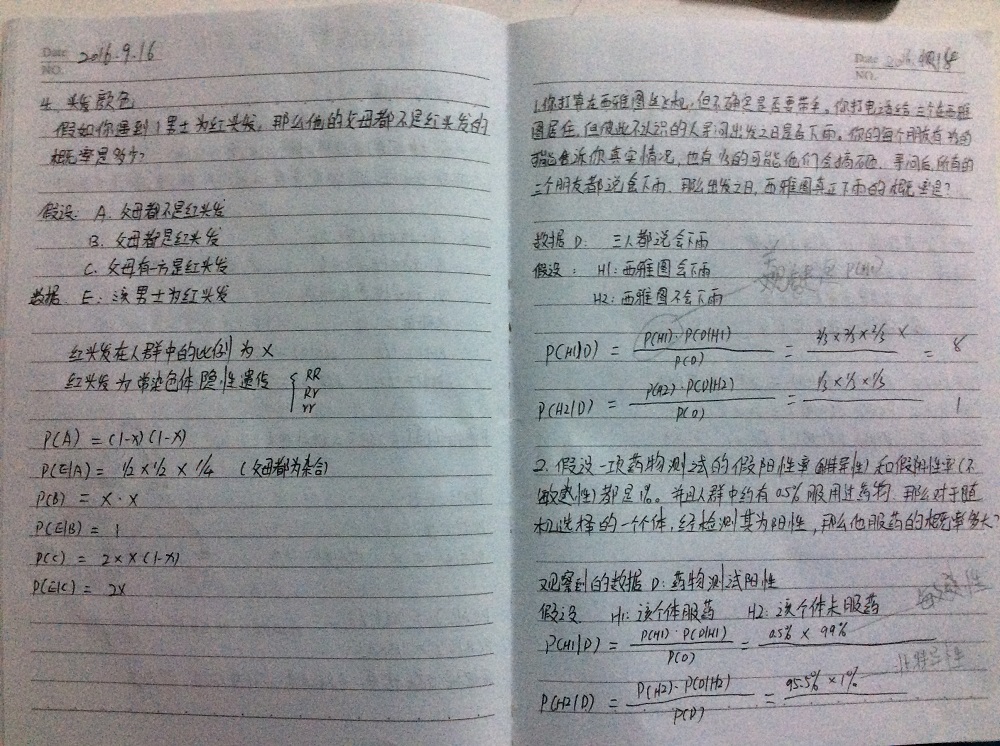 Date 2016.9.16
NO.
4. 头发颜色
假如你遇到1男士为红头发,那么他的父母都不是红头发的
概率是多少?
假设: A. 父母都不是红头发
B. 父母都是红头发
C. 父母有一方是红头发
数据 E: 该男士为红头发
红头发在人群中的比例为x
红头发为常染色体隐性遗传 { RR
Rr
rr
P(A) = (1-x)(1-x)
P(E|A) = 1/2 × 1/2 × 1/4 (父母都为杂合)
P(B) = x·x
P(E|B) = 1
P(C) = 2x × (1-x)
P(E|C) = 2x
Date
NO.
1.你打算在西雅图坐飞机,但不确定是否要带伞,你打电话给三个在西雅
图居住,但彼此不认识的人寻问出发之日是否下雨,你的每个朋友有 2/3的
可能告诉你真实情况,也有 1/3的可能他们会搞砸。寻问后,所有的
三个朋友都说会下雨,那么出发之日,西雅图真正下雨的概率是?
数据 D: 三人都说会下雨
假设: H1: 西雅图会下雨
H2: 西雅图不会下雨
P(H1)
P(H1|D) = P(H1)·P(D|H1) / P(D) = 2/3 × 2/3 × 2/3 × = 8
P(H2|D) = P(H2)·P(D|H2) / P(D) = 1/3 × 1/3 × 1/3 1
2. 假设一项药物测试的假阳性率(特异性)和假阴性率(不
敏感性)都是1%。并且人群中约有0.5%服用过药物,那么对于随
机选择的一个个体,经检测其为阳性,那么他服药的概率多大?
观察到的数据 D: 药物测试阳性
假设 H1: 该个体服药 H2: 该个体未服药
敏感性
P(H1|D) = P(H1)·P(D|H1) / P(D) = 0.5% × 99%
特异性
P(H2|D) = P(H2)·P(D|H2) / P(D) = 95.5% × 1%